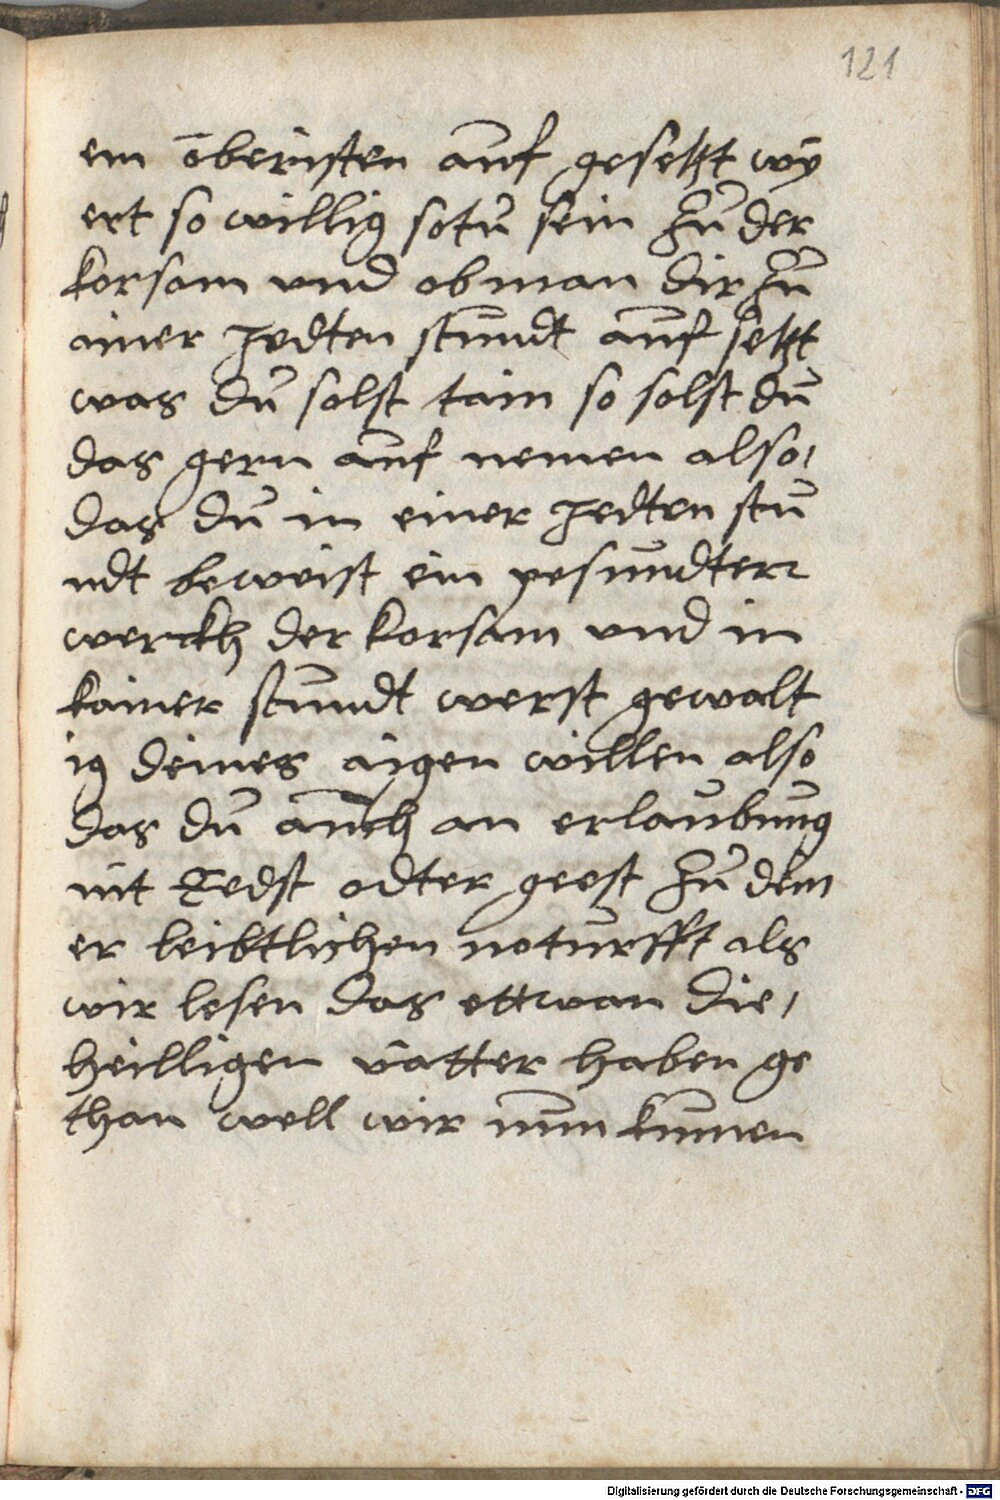 121
em öberisten auf gesetzt wÿ
ert so willig sotu sein zu der
korsam und ob man dir zu
ainer yedten stundt auf setzt
was du solst tain so solst du
das gern auf nemen also/
das du in einer yedten stu
ndt beweist ein pesundterr
werckh der korsam und in
kainer stundt werst gewalt
ig deines aigen willen also
das du auch an erlaubung
nit Redst odter geest zu dein
er leibtlichen noturfft als
wir lesen das ettwan die/
heilligen vatter haben ge
than well wir nun kumen
Digitalisierung gefördert durch die Deutsche Forschungsgemeinschaft - DFG